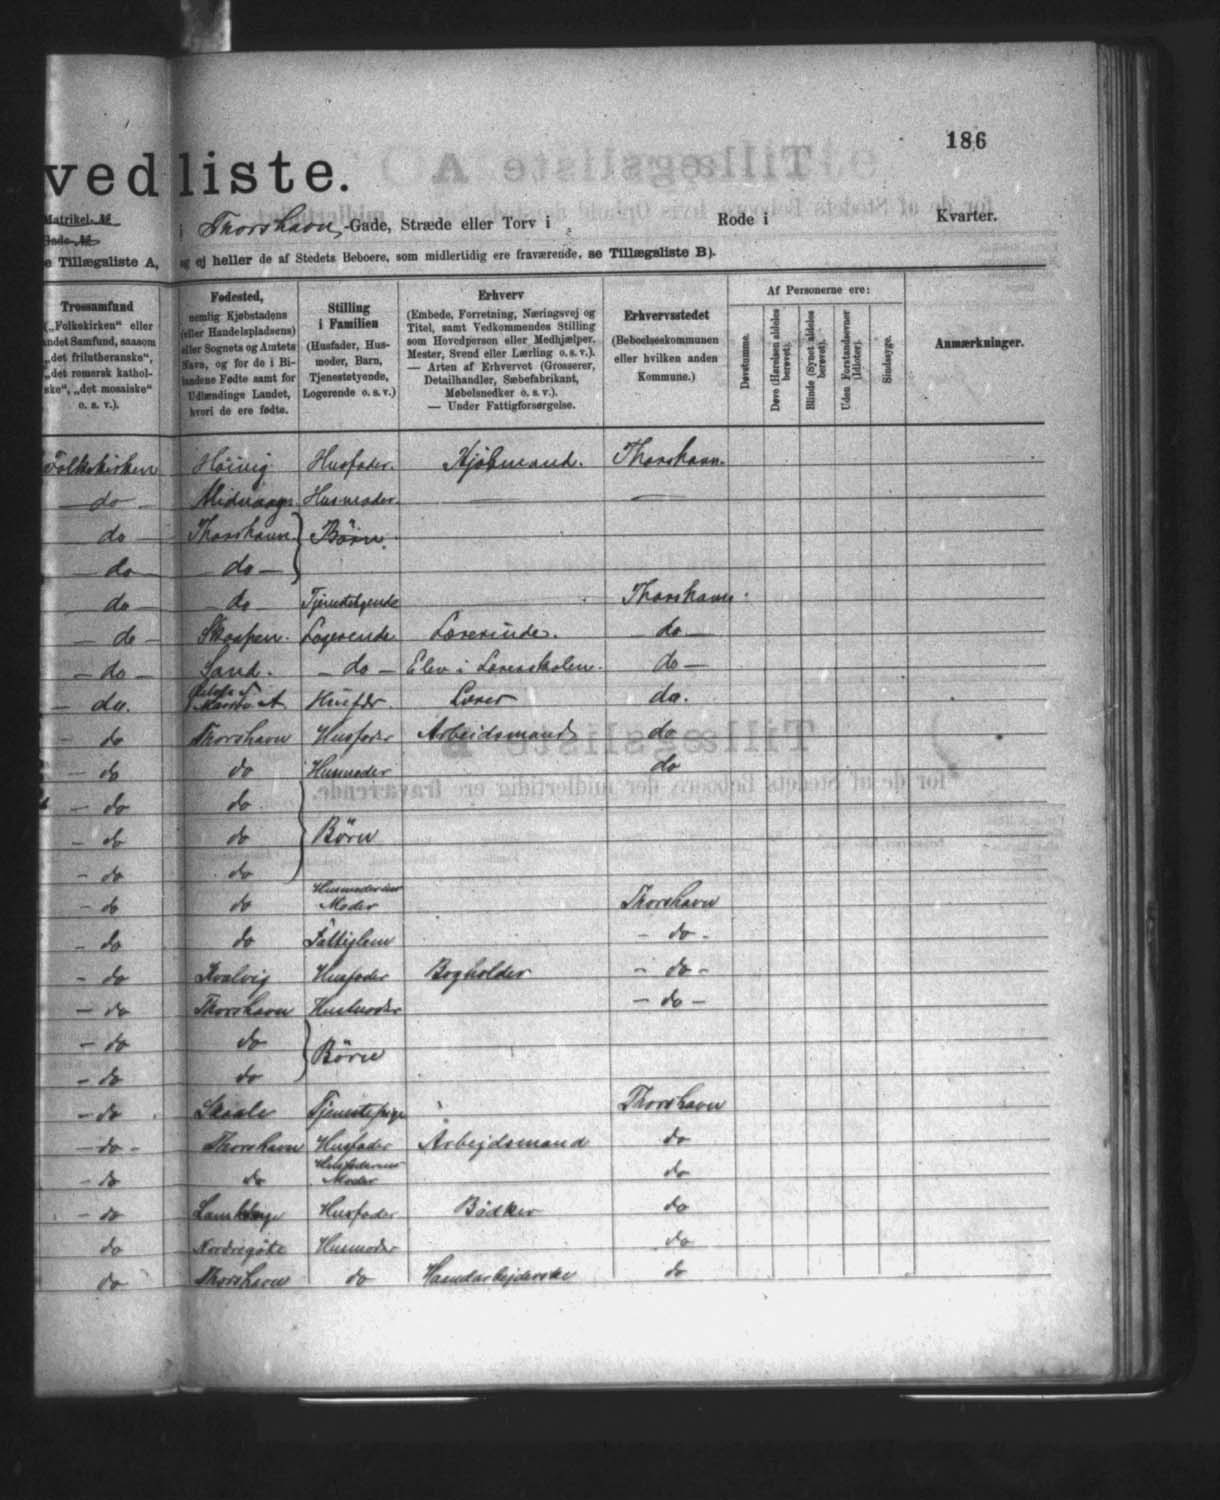 186
vedliste.
Matrikel-№
Gade-№
i Thorshavn -Gade, Stræde eller Torv i Rode i Kvarter.
e Tillægsliste A, og ej heller de af Stedets Beboere, som midlertidig ere fraværende, se Tillægsliste B).
Trossamfund
(„Folkekirken“ eller
andet Samfund, saasom
„det frilutheranske“,
„det romersk kathol-
ske“, „det mosaiske“
o. s. v.).
Fødested,
nemlig Kjøbstadens
(eller Handelspladsens)
eller Sognets og Amtets
Navn, og for de i Bi-
landene Fødte samt for
Udlændinge Landet,
hvori de ere fødte.
Stilling
i Familien
(Husfader, Hus-
moder, Barn,
Tjenestetyende,
Logerende o. s. v.)
Erhverv
(Embede, Forretning, Næringsvej og
Titel, samt Vedkommendes Stilling
som Hovedperson eller Medhjælper,
Mester, Svend eller Lærling o. s. v.).
— Arten af Erhvervet (Grosserer,
Detailhandler, Sæbefabrikant,
Møbelsnedker o. s. v.).
— Under Fattigforsørgelse.
Erhvervsstedet
(Beboelseskommunen
eller hvilken anden
Kommune.)
Af Personerne ere:
Døvstumme.
Døve (Hørelsen aldeles
berøvet).
Blinde (Synet aldeles
berøvet).
Uden Forstandsevner
(Idioter).
Sindssyge.
Anmærkninger.
Folkekirken Husfader. Kjøbmand. Thorshavn.
do — Husmoder. — —
do — Thorshavn } Børn.
— do — — do —
do — — do — Tjenestetyende Thorshavn
— do — Logerende Lærerinde. — do —
— do — Sand. — do — Elev i Lærerskolen. do —
— do. Husfdr. Lærer do.
— do Thorshavn Husfader Arbeidsmand do
— do do Husmoder do
— do do
— do do } Børn
— do do
— do do Moder Thorshavn
— do do Fattiglem — do —
— do Kvalvig Husfader Bogholder — do —
— do Thorshavn Husmoder — do —
— do do } Børn
— do do
— do Skaale Tjenestepige Thorshavn
— do — Thorshavn Husfader Arbejdsmand do
— do do Husfaderens Moder do
— do Husfader Bødker do
do Nordregöte Husmoder do
do Thorshavn do Haandarbejderske do